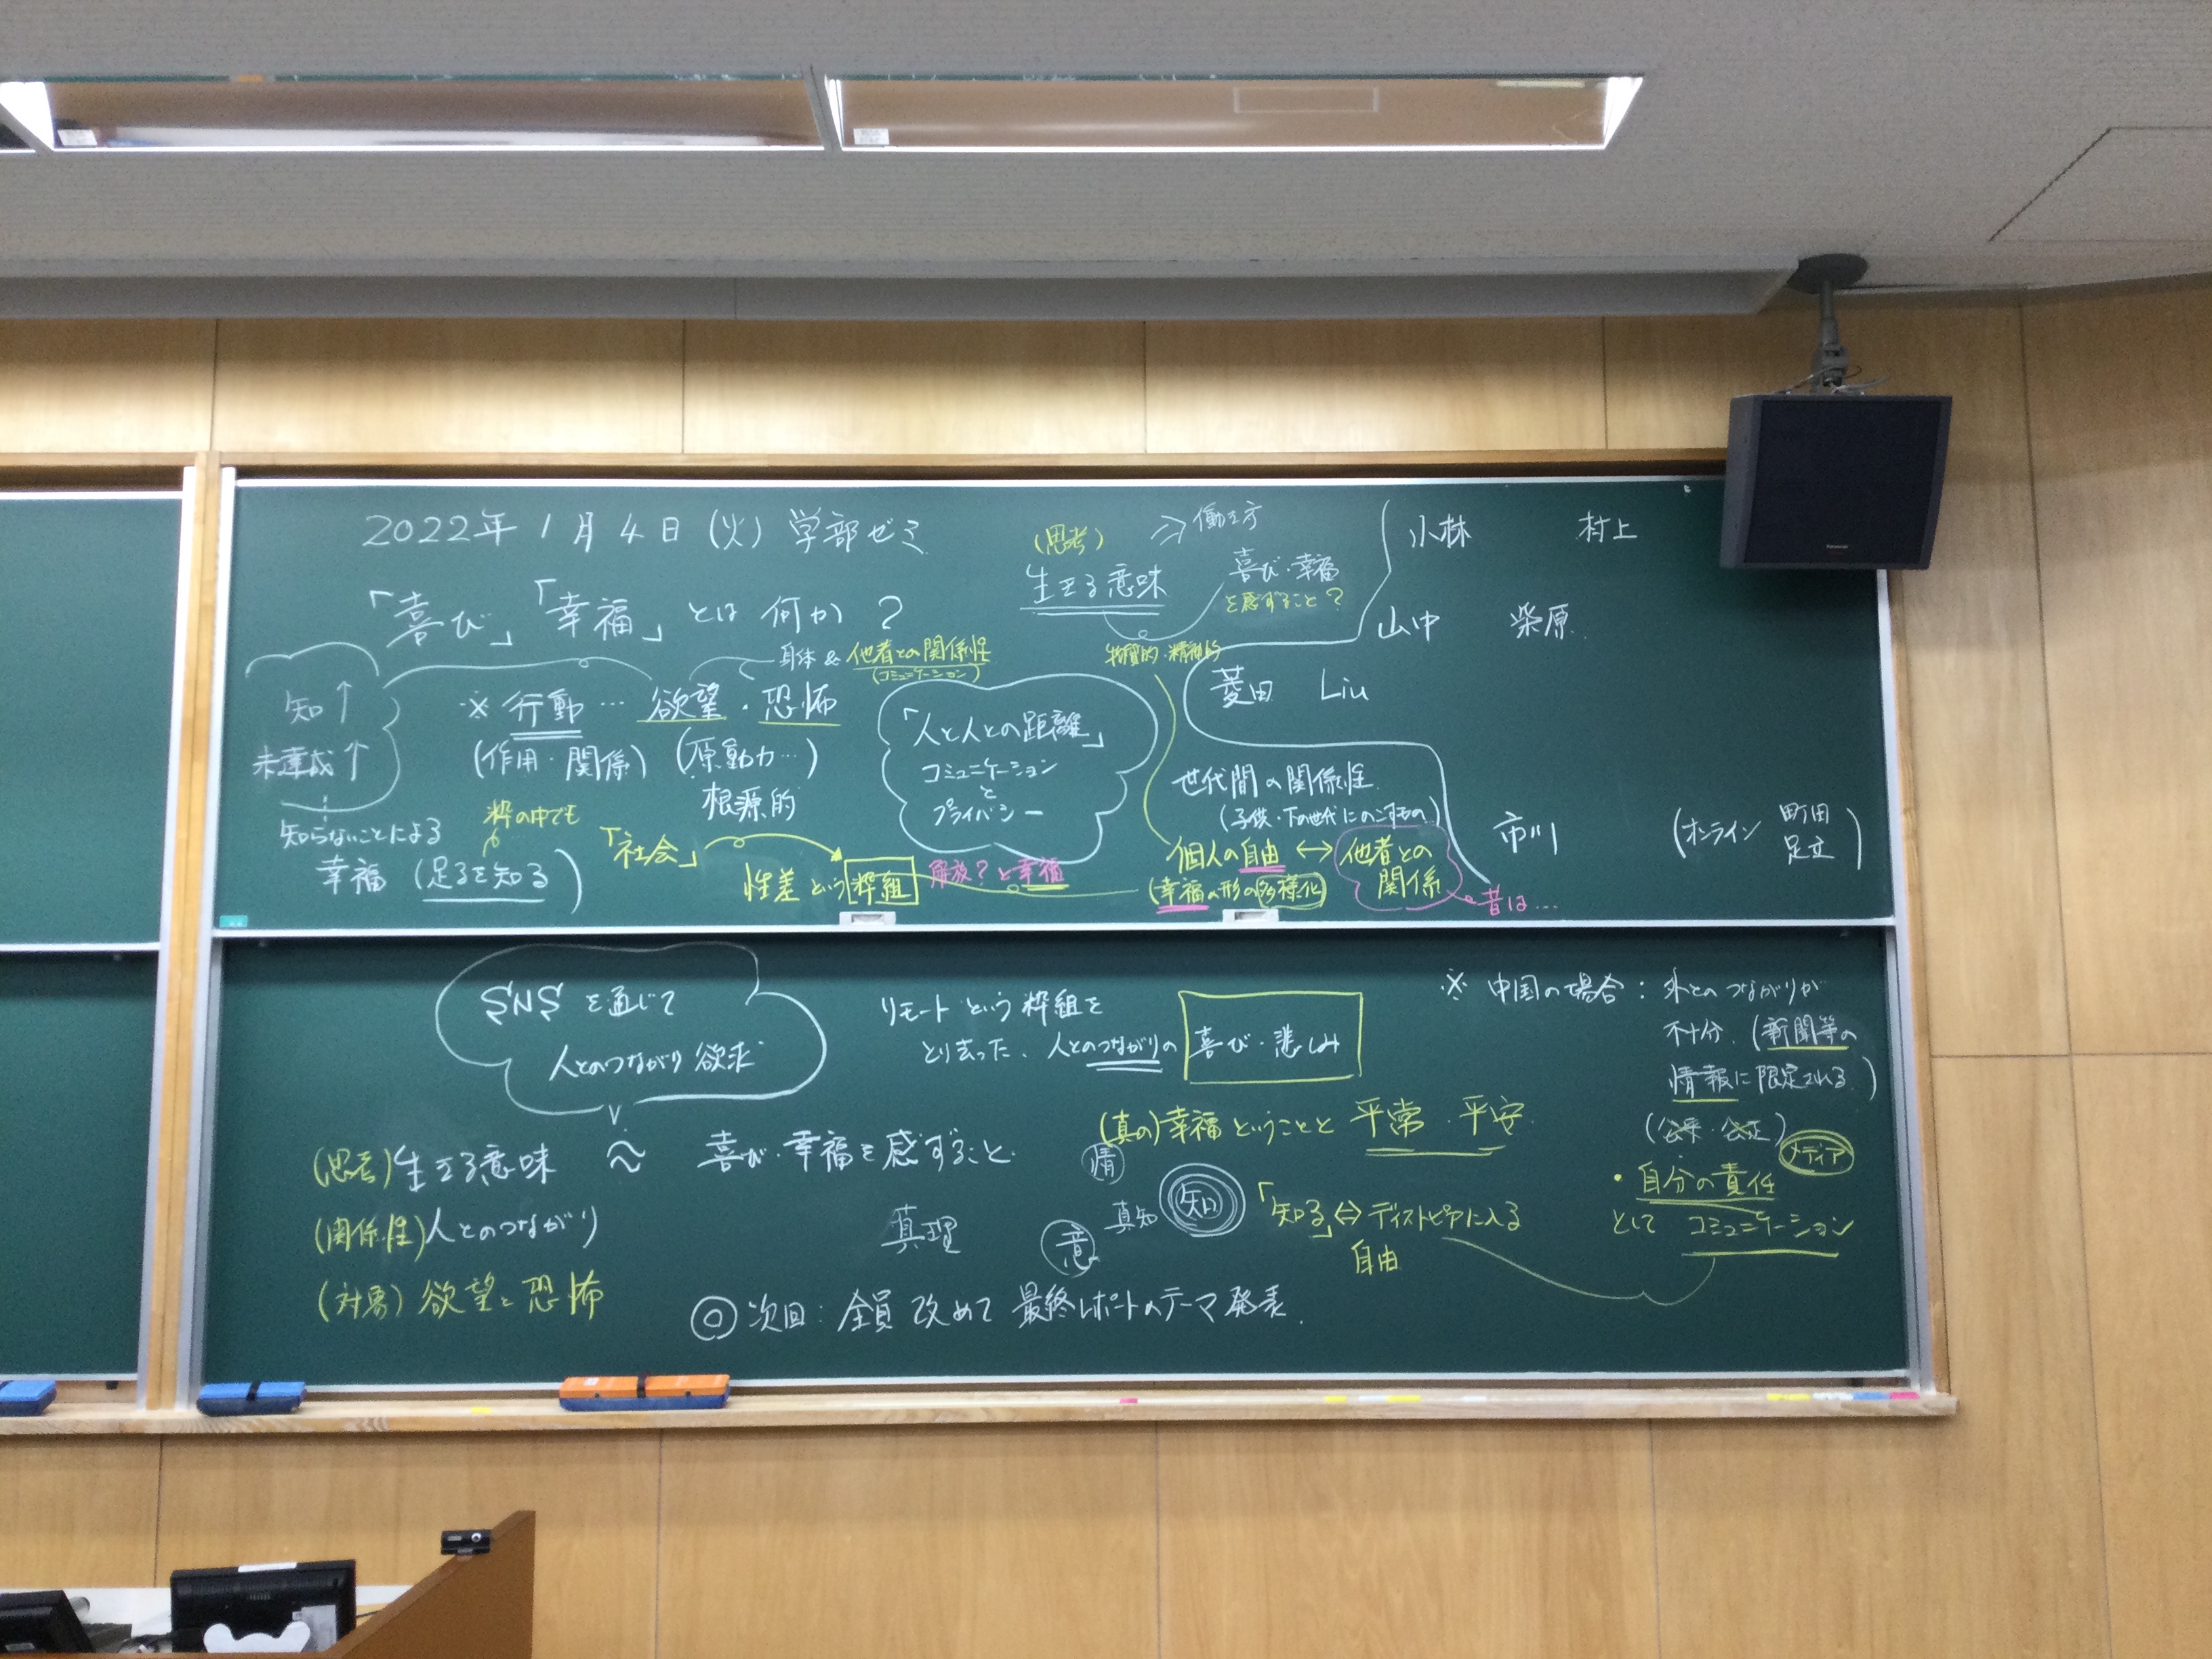 2022年1月4日(火)学部ゼミ
「喜び」「幸福」とは何か?
(思考)
生きる意味
⇒働き方
喜び・幸福
を感ずること?
物質的・精神的
小林 村上
山中 柴原
菱田 Liu
市川
(オンライン 町田
足立)
身体& 他者との関係性
(コミュニケーション)
知↑
未達成↑
※行動…欲望・恐怖
(作用・関係) (原動力…)
根源的
知らないことによる
幸福(足るを知る)
枠の中でも
「社会」
性差という枠組
解放?と幸福
「人と人との距離」
コミュニケーション
と
プライバシー
世代間の関係性
(子供・下の世代にのこすもの)
個人の自由↔他者との
関係
(幸福の形の多様化)
昔は…
SNSを通じて
人とのつながり欲求
リモートという枠組を
とり去った、人とのつながりの喜び・悲しみ
※中国の場合:外とのつながりが
不十分.(新聞等の
情報に限定される.)
(公平・公正)
メディア
・自分の責任
として コミュニケーション
(真の)幸福ということと平常・平安
(思考)生きる意味 〜 喜び・幸福を感ずること
(関係性)人とのつながり
(対象)欲望と恐怖
真理
情
意
真知
知
「知る」⇔ディストピアに入る
自由
◎次回:全員改めて最終レポートのテーマ発表.